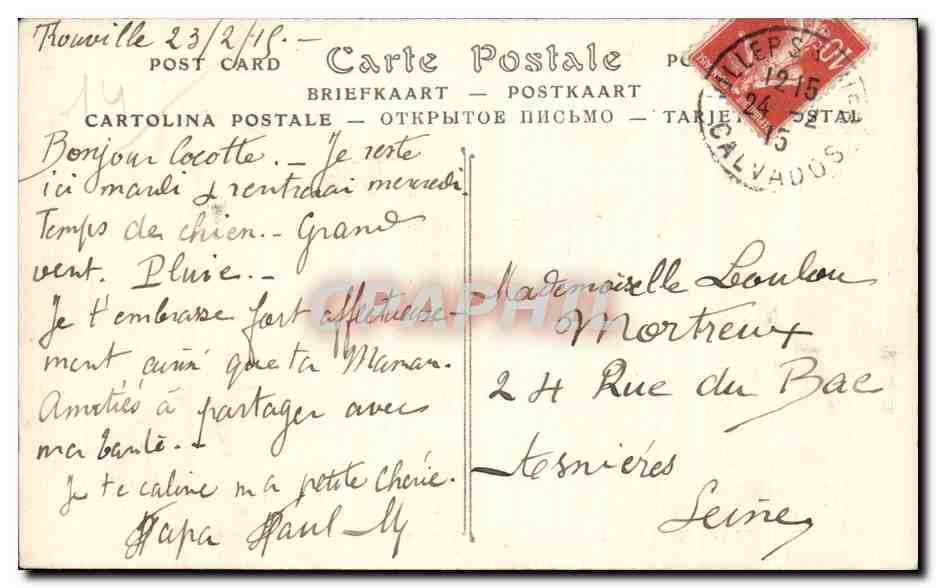 Trouville 23/2/15. -
POST CARD Carte Postale
BRIEFKAART — POSTKAART
CARTOLINA POSTALE — ОТКРЫТОЕ ПИСЬМО — TARJE POSTAL
10
VILLERS S MER
12-15
24 2
15
CALVADOS
14
Bonjour Cocotte. - Je reste
ici mardi & rentrerai mercredi.
Temps de chien. - Grand
vent. Pluie. -
Je t'embrasse fort affectueuse-
ment ainsi que ta Maman.
Amitiés à partager avec
ma tante. -
Je te caline ma petite Chérie.
Papa Paul M
Mademoiselle Loulou
Mortreux
24 Rue du Bac
Asnières
Seine
CPAPHIL